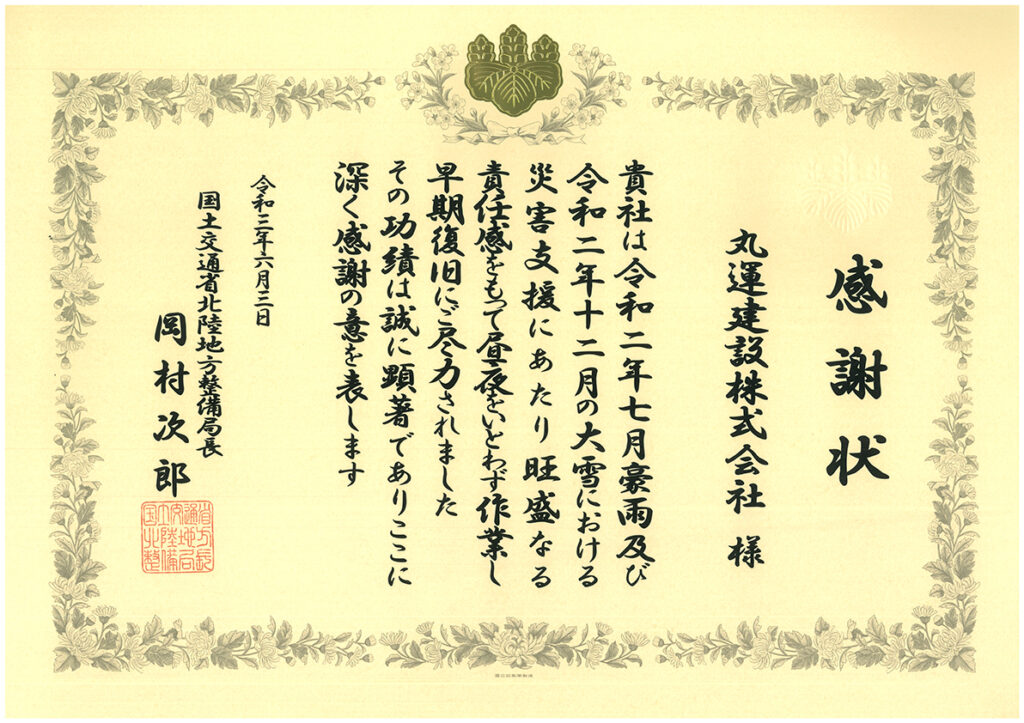 感謝状
丸運建設株式会社 様
貴社は令和二年七月豪雨及び
令和二年十二月の大雪における
災害支援にあたり旺盛なる
責任感をもって昼夜をいとわず作業し
早期復旧にご尽力されました
その功績は誠に顕著でありここに
深く感謝の意を表します
令和三年六月三日
国土交通省北陸地方整備局長
岡村次郎